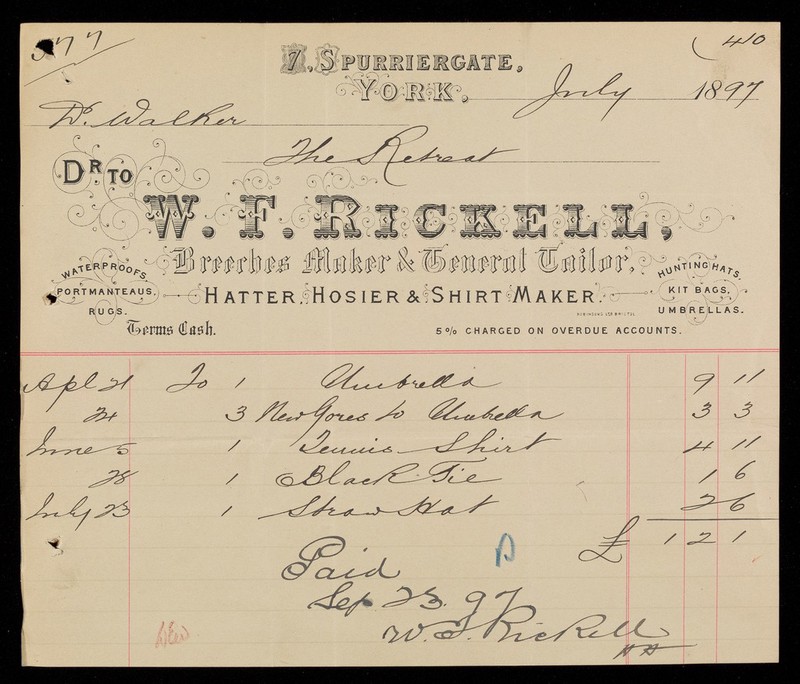 377
(410
7, SPURRIERGATE,
YORK, July 1897
Dr. Walker
The Retreat
DR TO
W. F. RICKELL,
Breeches Maker & General Tailor,
HATTER, HOSIER & SHIRT MAKER.
WATERPROOFS,
PORTMANTEAUS,
RUGS.
HUNTING HATS,
KIT BAGS,
UMBRELLAS.
Terms Cash.
5% CHARGED ON OVERDUE ACCOUNTS.
Apl 21 To 1 Umbrella 9 11
24 3 New Gores to Umbrella 3 3
June 5 1 Tennis Shirt 4 11
28 1 Black Tie 1 6
July 23 1 Straw Hat 2 6
£ 1 2 1
Paid
Sep 23. 97
W. F. Rickell